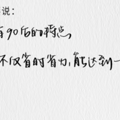 说:
有90后的特点
不仅省时省力,能达到一